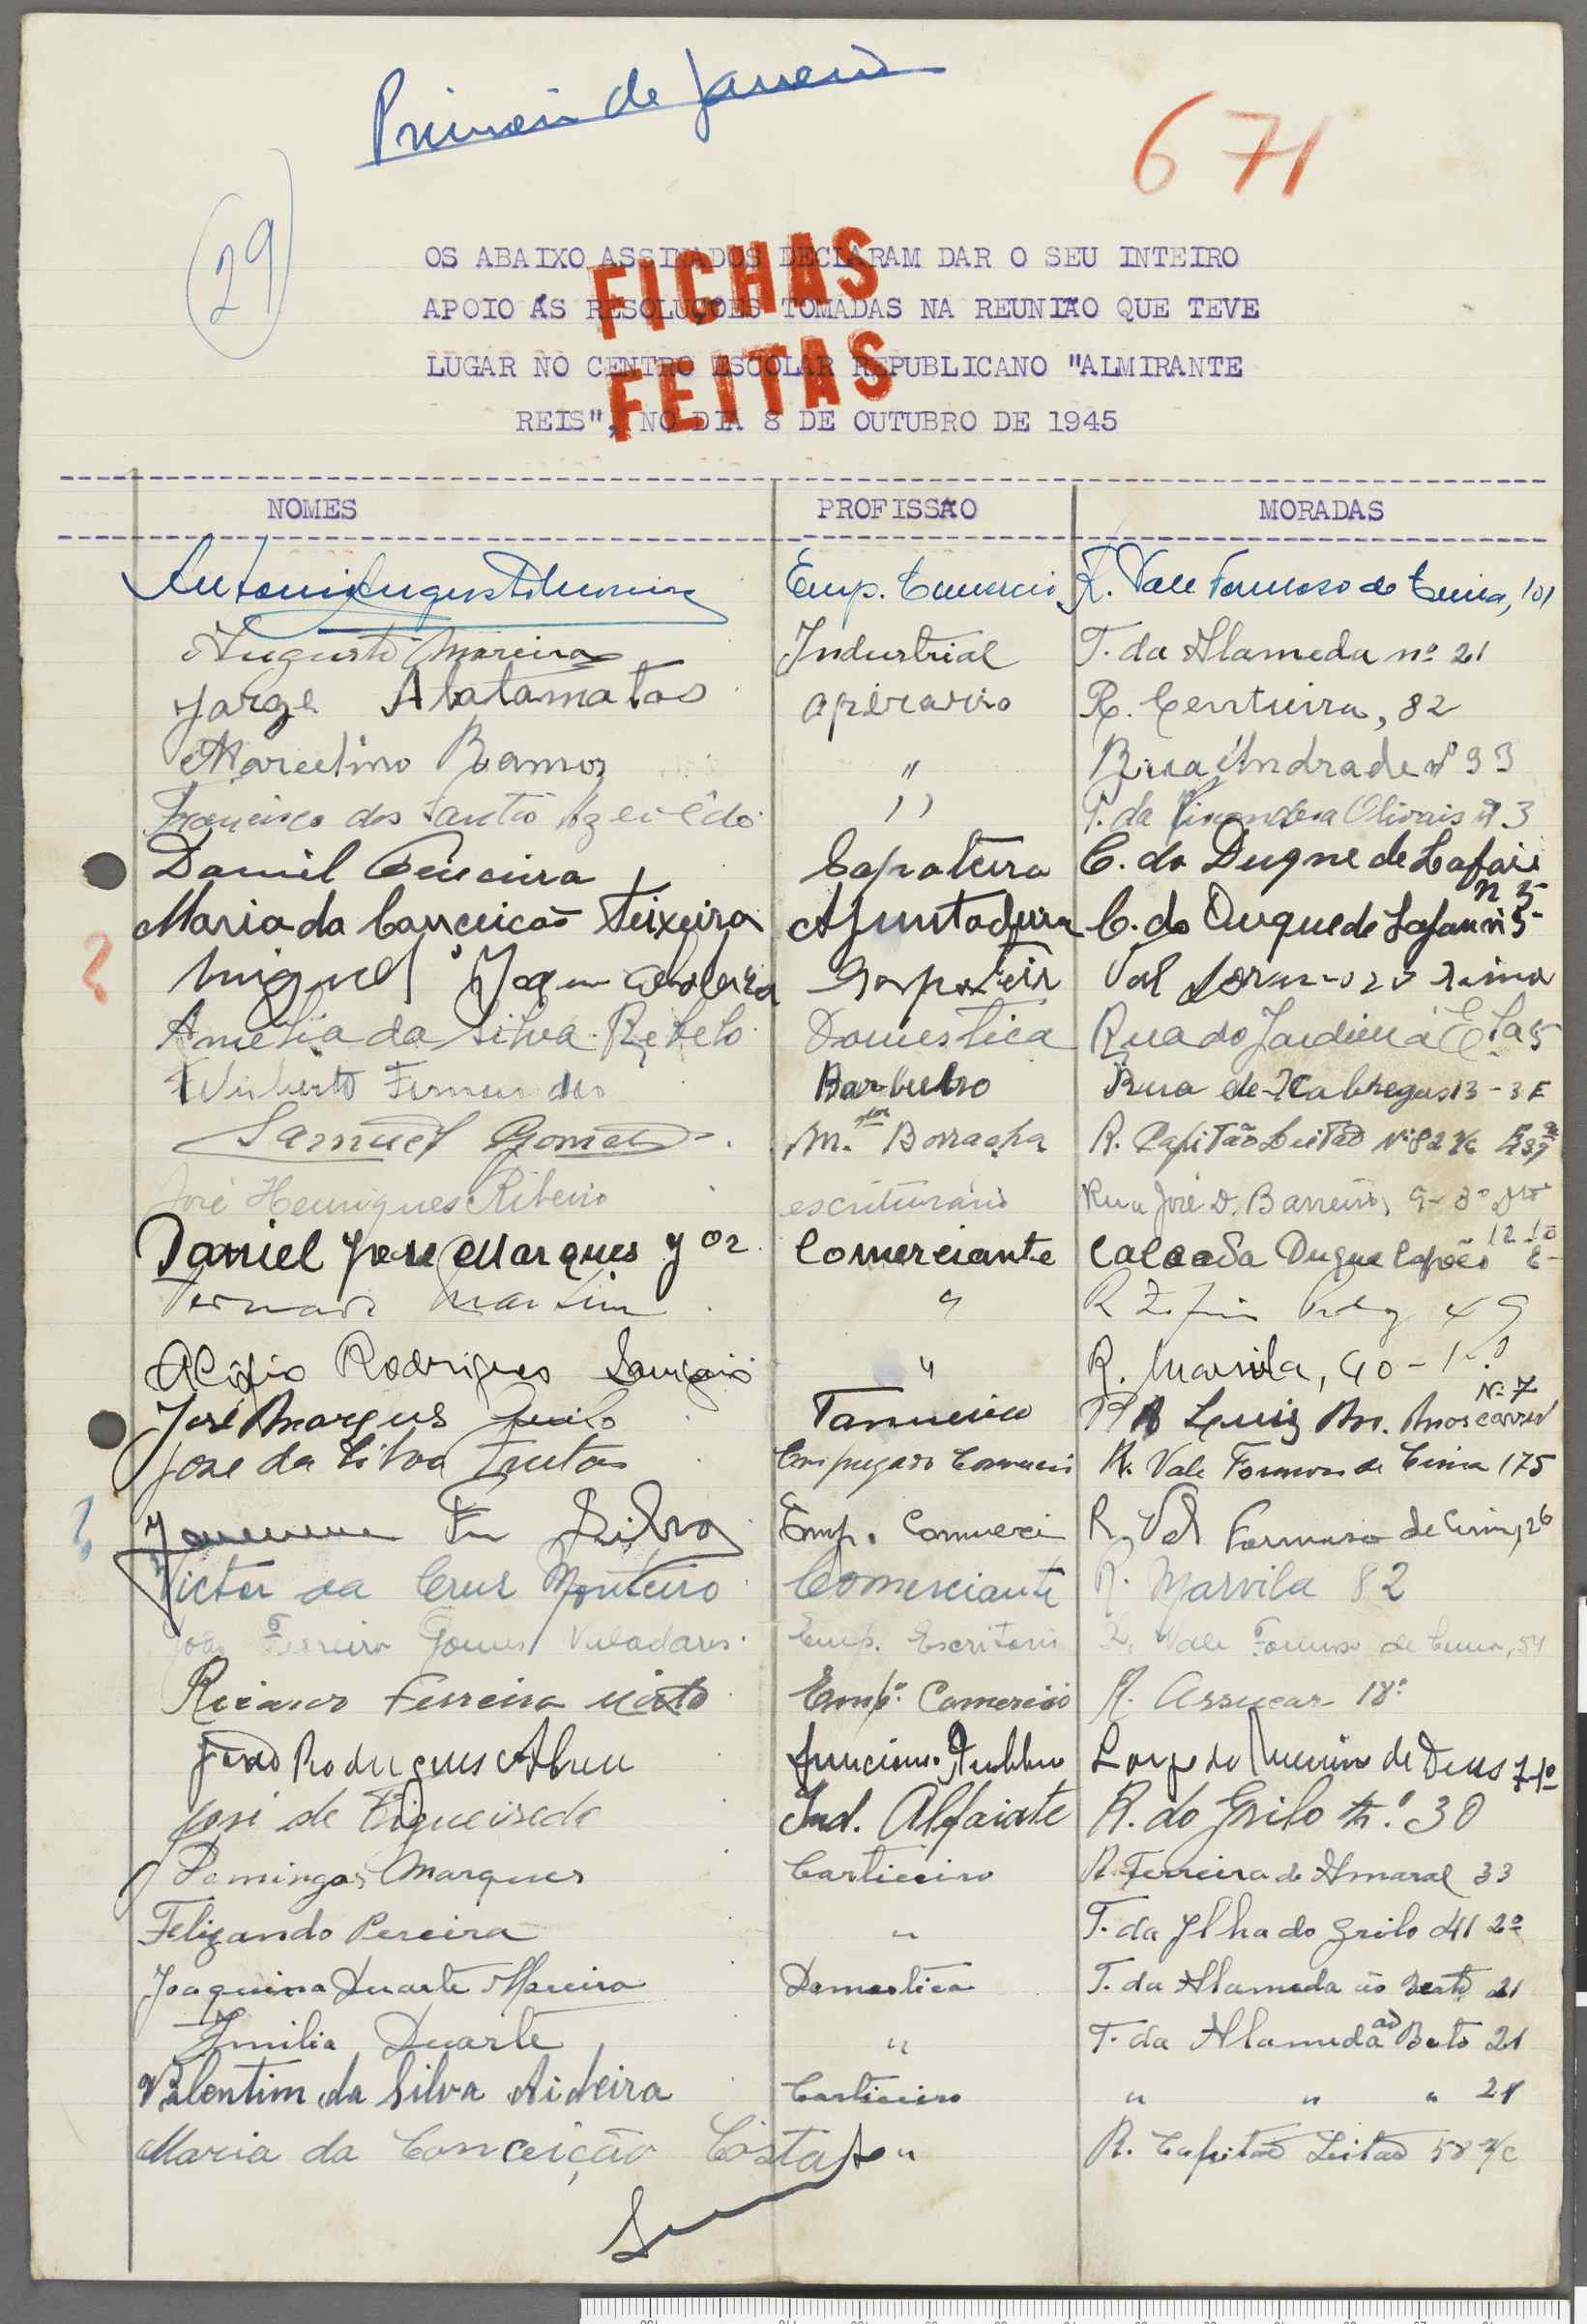 Primeiro de Janeiro
671
(29)
OS ABAIXO ASSINADOS DECLARAM DAR O SEU INTEIRO
APOIO ÁS RESOLUÇOES TOMADAS NA REUNIÃO QUE TEVE
LUGAR NO CENTRO ESCOLAR REPUBLICANO "ALMIRANTE
REIS", NO DIA 8 DE OUTUBRO DE 1945
FICHAS
FEITAS
NOMES PROFISSÃO MORADAS
Emp. Comercio R. Vale Formoso de Cima, 101
Augusto Moreira Industrial T. da Alameda nº 21
Jorge Matamatos operario R. Centieira, 82
Marcelino Ramos " Rua Andrade nº 93
Francisco dos Santos " T. da Olivais nº 3
Daniel Teixeira Sapateiro C. do Duque de Lafões n 5
Maria da Conceição Teixeira Ajuntadeira C. do Duque de Lafões nº 5
Miguel
Amelia da Silva Rebelo Domestica Rua do Jardim
Fernandes Barbeiro Rua de Xabregas 13 - 3 E
Samuel Gomes M. Borracha R. Capitão Leitão Nº 82 r/c
José Henriques Ribeiro escriturario Rua José D. Barreiros, 9- 3º Dto
Daniel José Marques Jor Comerciante Calçada Duque Lafões 12 1º E
Martins " R
Rodrigues " R. Marvila, 90 - 1º
José Marques Tanoeiro R Luis Nº 7
José da Silva Freitas Empregado Comercio R. Vale Formoso de Cima 175
Silva Emp. Comercio R. Vale Formoso de Cima, 26
Victor da Cruz Monteiro Comerciante R. Marvila 82
João Ferreira Gomes Valadares Emp. Escritorio R. Vale Formoso de Cima, 54
Ferreira Empº. Comercio R. Assucar 18º
João Rodrigues Abreu funcion. Publico Largo de Deus 7-1º
José de Figueiredo Ind. Alfaiate R. do Grilo nº. 30
Domingos Marques Corticeiro R. Ferreira do Amaral 33
Felizando Pereira " T. da Ilha do Grilo 41 2º
Joaquina Duarte Moreira Domestica T. da Alameda ao Beato 21
Emilia Duarte " T. da Alameda ao Beato 21
Valentim da Silva Aideira Corticeiro " " " 21
Maria da Conceição Costa " R. Capitão Leitão 58 r/c